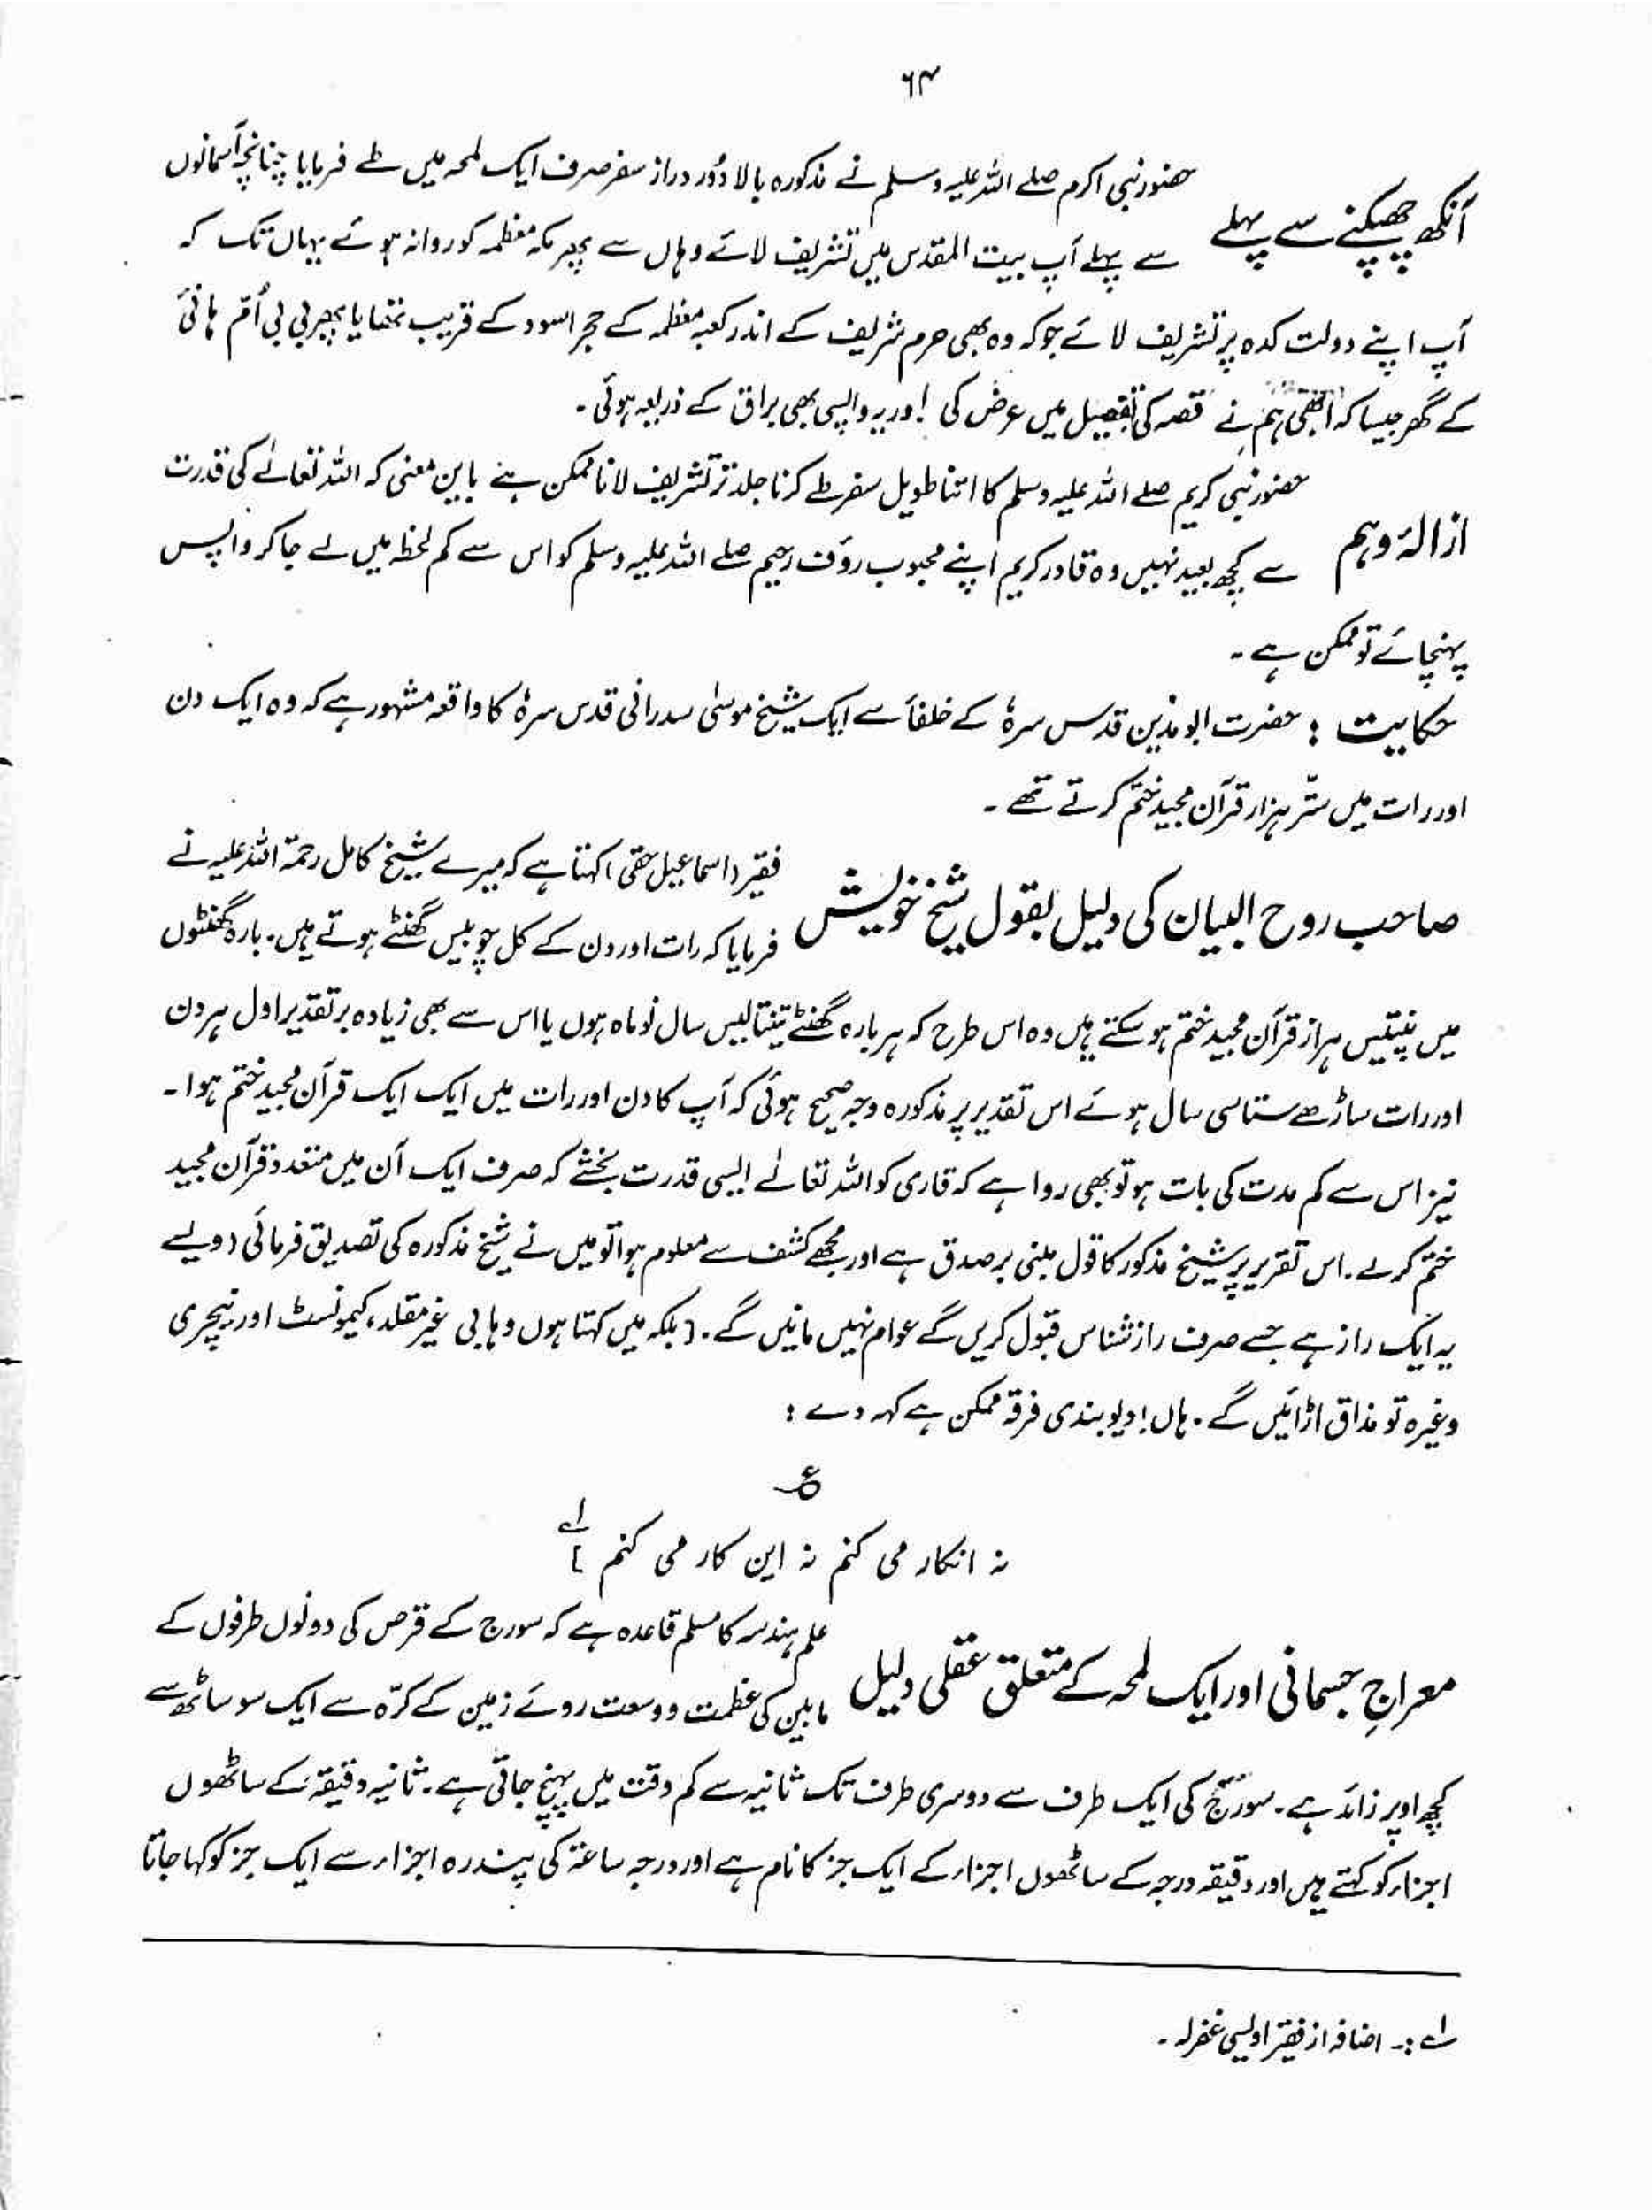 ۶۴
آنکھ جھپکنے سے پہلے حضور نبی اکرم صلے اللہ علیہ وسلم نے مذکورہ بالا دُور دراز سفر صرف ایک لمحہ میں طے فرمایا چنانچہ آسمانوں
سے پہلے آپ بیت المقدس میں تشریف لائے وہاں سے پھر مکہ معظمہ کو روانہ ہوئے یہاں تک کہ
آپ اپنے دولت کدہ پر تشریف لائے جو کہ وہ بھی حرم شریف کے اندر کعبہ معظمہ کے حجر اسود کے قریب تھا یا پھر بی بی اُمّ ہانیٔ
کے گھر جیسا کہ ابھی ہم نے قصہ کی تفصیل میں عرض کی اور یہ واپسی بھی براق کے ذریعہ ہوئی۔
ازالۂ وہم حضور نبی کریم صلے اللہ علیہ وسلم کا اتنا طویل سفر طے کرنا جلد تر تشریف لانا ممکن ہے باین معنی کہ اللہ تعالےٰ کی قدرت
سے کچھ بعید نہیں وہ قادر کریم اپنے محبوب رؤف رحیم صلے اللہ علیہ وسلم کو اس سے کم لحظہ میں لے جا کر واپس
پہنچائے تو ممکن ہے۔
حکایت : حضرت ابو مدین قدس سرہٗ کے خلفأ سے ایک شیخ موسیٰ سدرانی قدس سرہٗ کا واقعہ مشہور ہے کہ وہ ایک دن
اور رات میں ستّر ہزار قرآن مجید ختم کرتے تھے۔
صاحب روح البیان کی دلیل بقول شیخ خویش فقیر (اسماعیل حقی) کہتا ہے کہ میرے شیخ کامل رحمۃ اللہ علیہ نے
فرمایا کہ رات اور دن کے کل چوبیس گھنٹے ہوتے ہیں۔ بارہ گھنٹوں
میں پینتیس ہراز قرآن مجید ختم ہو سکتے ہیں وہ اس طرح کہ ہر بارہ گھنٹے تینتالیس سال نو ماہ ہوں یا اس سے بھی زیادہ بر تقدیر اول ہر دن
اور رات ساڑھے ستاسی سال ہوئے اس تقدیر پر مذکورہ وجہ صحیح ہوئی کہ آپ کا دن اور رات میں ایک ایک قرآن مجید ختم ہوا۔
نیز اس سے کم مدت کی بات ہو تو بھی روا ہے کہ قاری کو اللہ تعالےٰ ایسی قدرت بخشے کہ صرف ایک آن میں متعدد قرآن مجید
ختم کر لے۔ اس تقریر پر شیخ مذکور کا قول مبنی بر صدق ہے اور مجھے کشف سے معلوم ہوا تو میں نے شیخ مذکورہ کی تصدیق فرمائی (ویسے
یہ ایک راز ہے جسے صرف راز شناس قبول کریں گے عوام نہیں مانیں گے۔ [بلکہ میں کہتا ہوں وہابی غیر مقلد، کیمونسٹ اور نیچری
وغیرہ تو مذاق اڑائیں گے۔ ہاں! دیوبندی فرقہ ممکن ہے کہہ دے :
ع
نہ انکار می کنم نہ این کار می کنم ] لے
معراجِ جسمانی اور ایک لمحہ کے متعلق عقلی دلیل علم ہندسہ کا مسلم قاعدہ ہے کہ سورج کے قرص کی دونوں طرفوں کے
مابین کی عظمت و وسعت روئے زمین کے کرّہ سے ایک سو ساٹھ سے
کچھ اوپر زائد ہے۔ سورج کی ایک طرف سے دوسری طرف تک ثانیہ سے کم وقت میں پہنچ جاتی ہے۔ ثانیہ دقیقہ کے ساٹھوں
اجزاء کو کہتے ہیں اور دقیقہ درجہ کے ساٹھوں اجزاء کے ایک جز کا نام ہے اور درجہ ساعۃ کی پندرہ اجزاء سے ایک جز کو کہا جاتا
لے :۔ اضافہ از فقیر اویسی غفرلہ۔